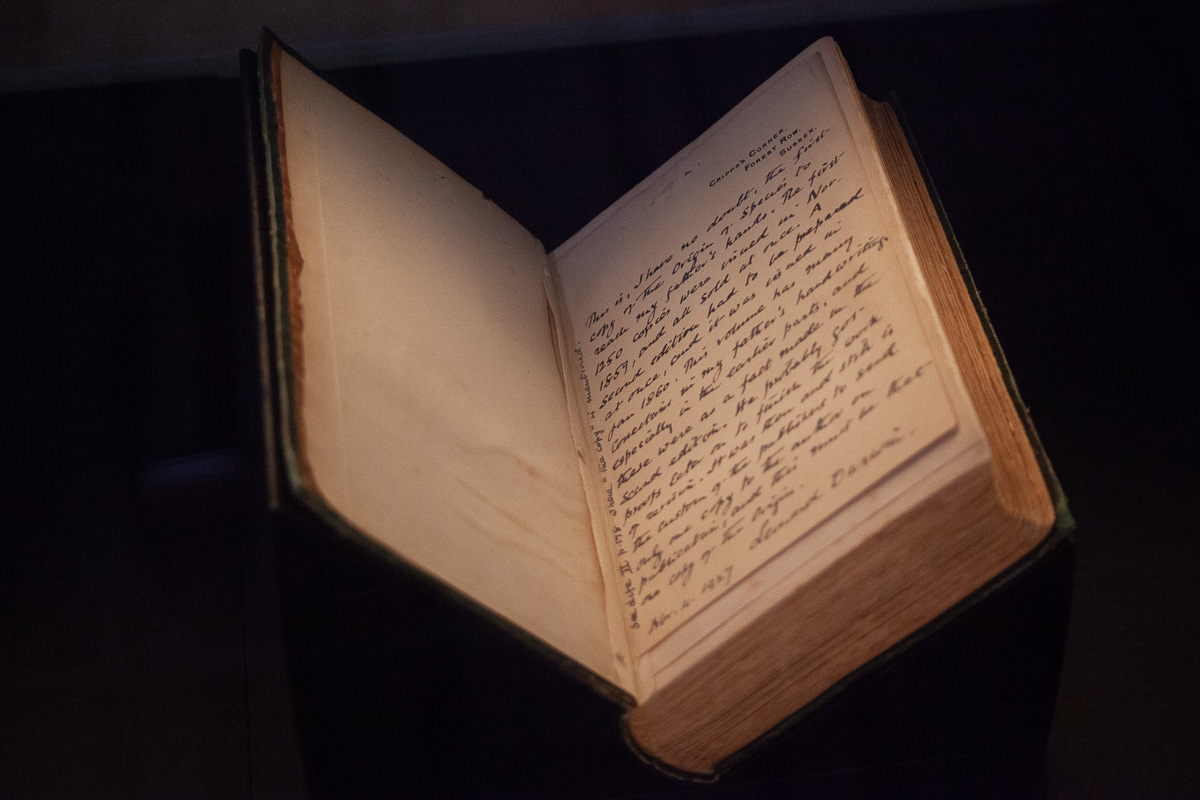 CRIPPS'S CORNER,
FOREST ROW,
SUSSEX.
This is, I have no doubt, the first
copy of The Origin of Species to
reach my father's hands. The first
1250 copies were issued in Nov.
1859, and all sold at once. A
second edition had to be prepared
at once, and it was issued in
Jan 1860. This volume has many
corrections in my father's handwriting
especially in the earlier parts, and
these were as a fact made in the
second edition. He probably got
proofs later on to finish the work
of revision. It was then and still is
the custom of the publishers to send
only one copy to the author on that
publication, and this must be that
no copy of the Origin.
Leonard Darwin.
Nov. 4. 1937
see Life II p. 178 where a this copy is mentioned.